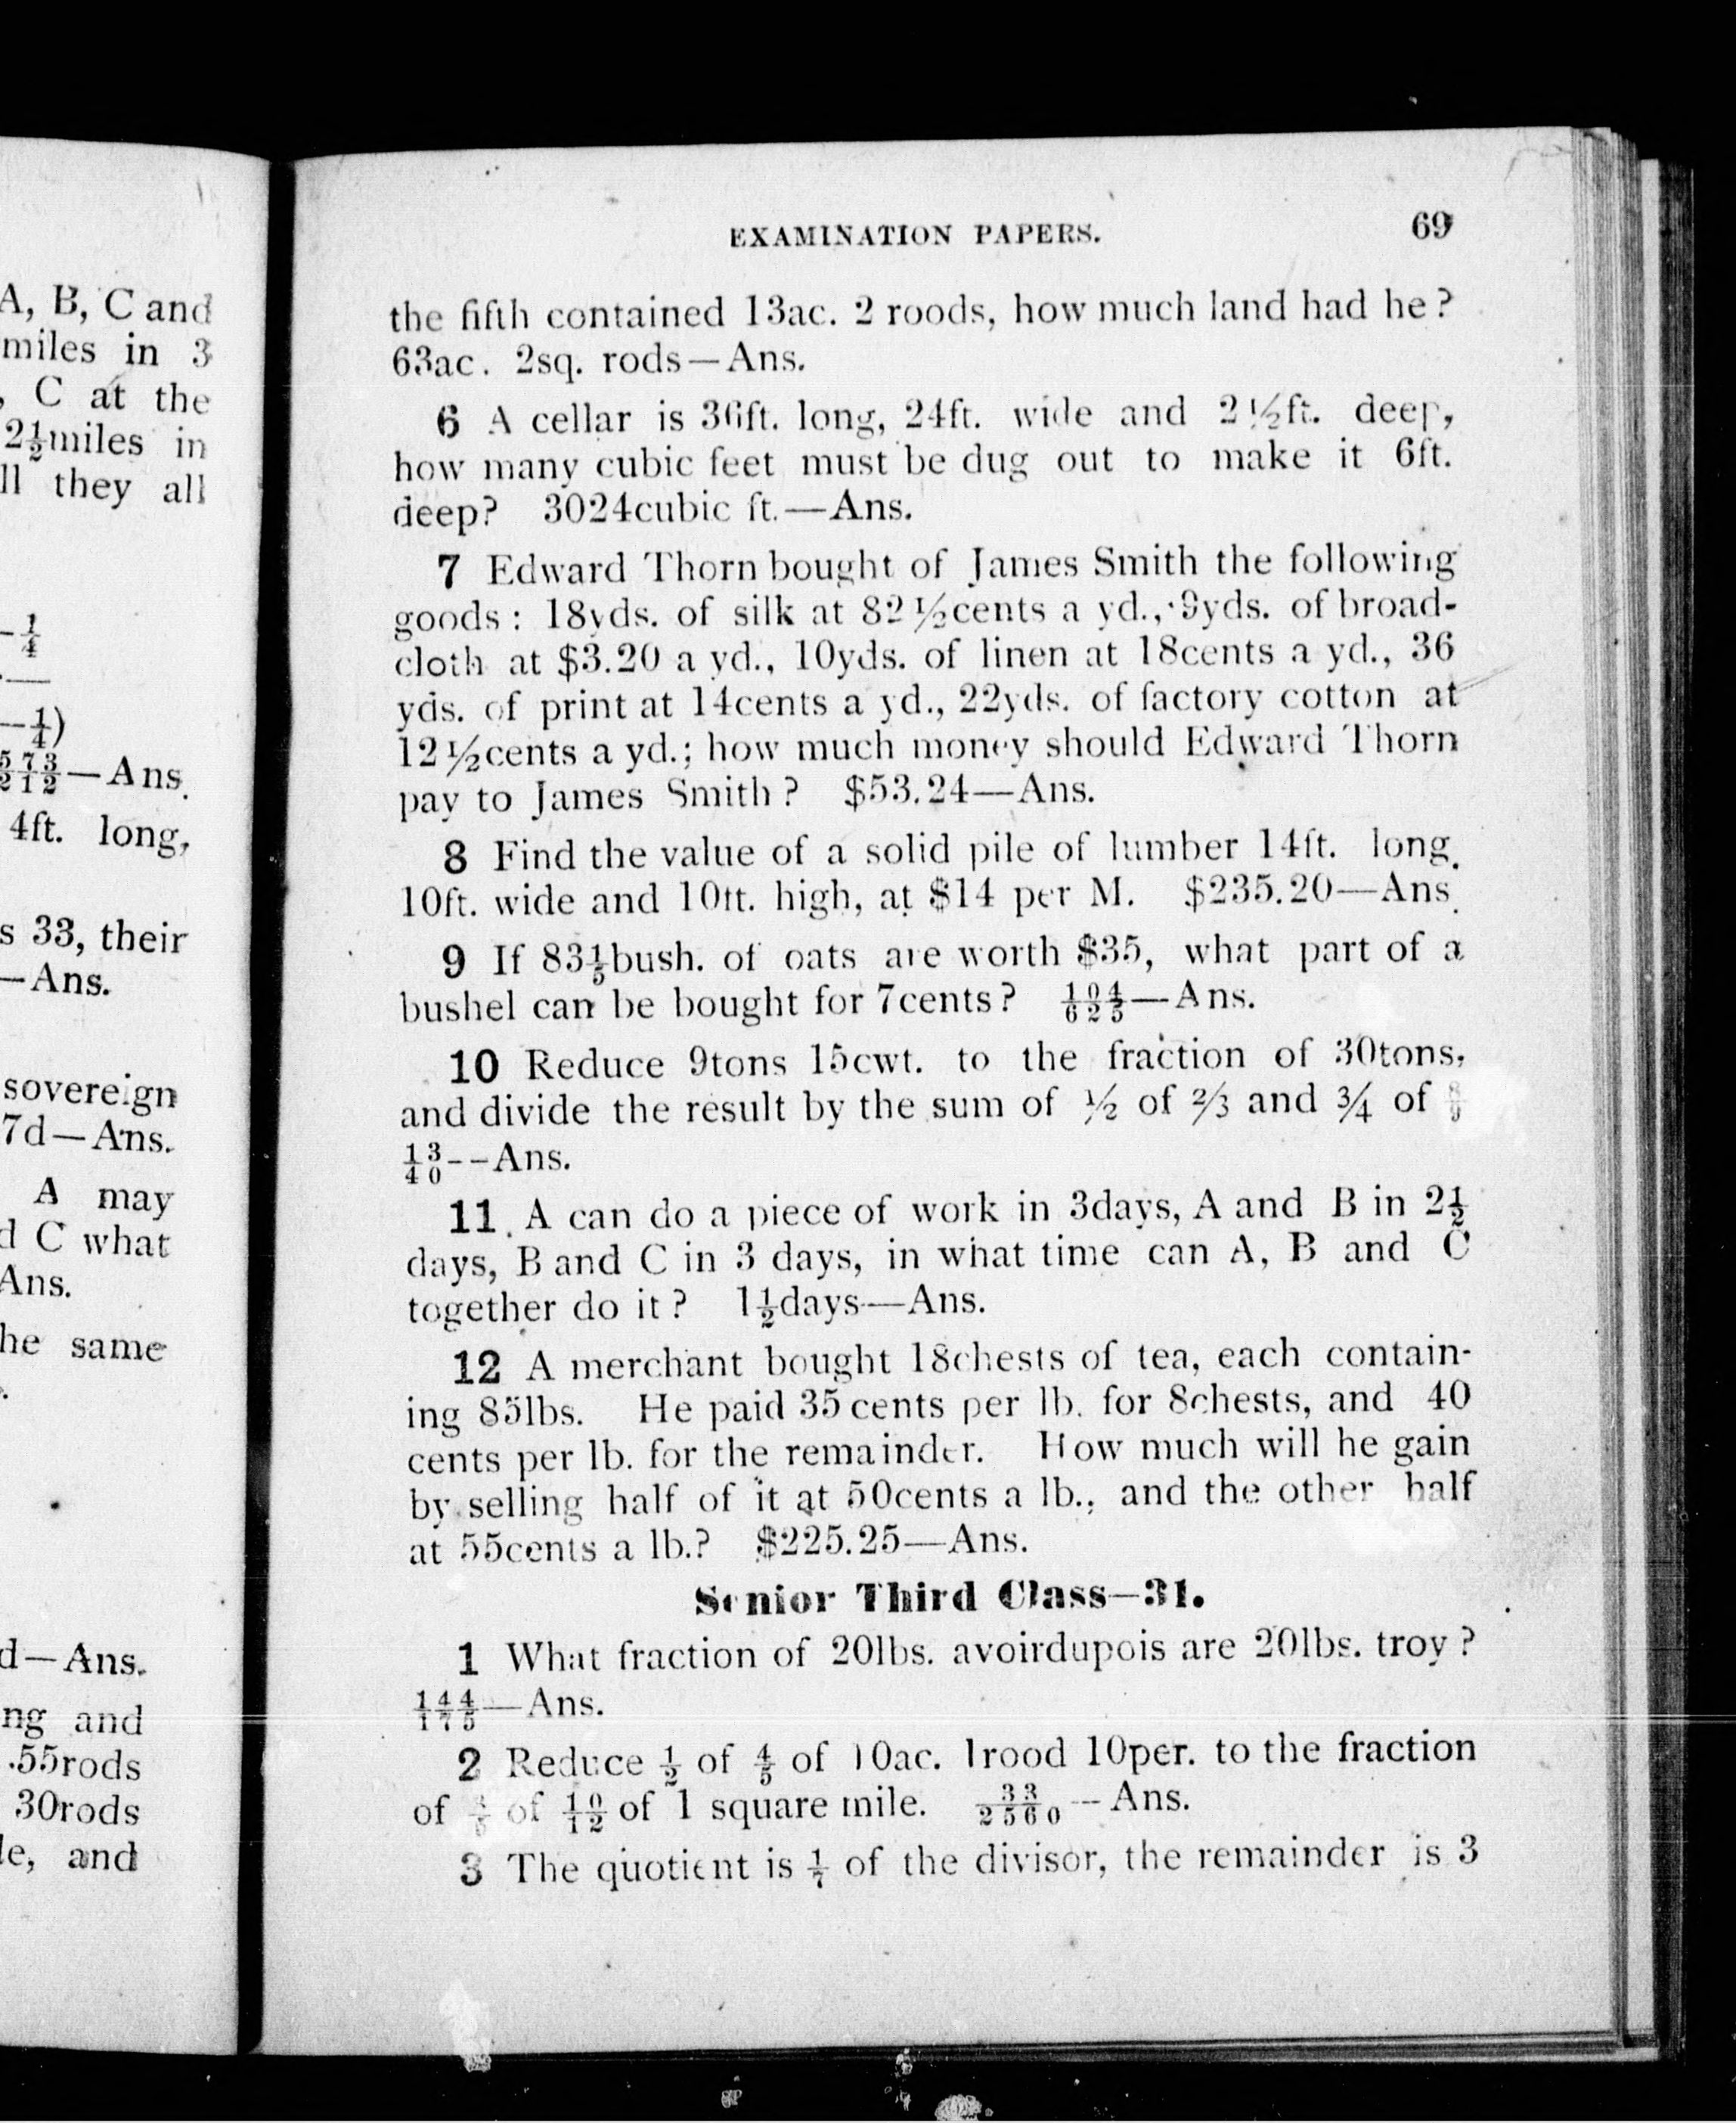 A, B, C and
miles in 3
, C at the
2½miles in
ll they all
-¼
-¼)
573/212—Ans.
4ft. long,
s 33, their
—Ans.
sovereign
7d—Ans.
A may
d C what
Ans.
he same
d—Ans.
ng and
.55rods
30rods
le, and
EXAMINATION PAPERS. 69
the fifth contained 13ac. 2 roods, how much land had he?
63ac. 2sq. rods—Ans.
6 A cellar is 36ft. long, 24ft. wide and 2½ft. deep,
how many cubic feet must be dug out to make it 6ft.
deep? 3024cubic ft.—Ans.
7 Edward Thorn bought of James Smith the following
goods: 18yds. of silk at 82½cents a yd., 9yds. of broad-
cloth at $3.20 a yd., 10yds. of linen at 18cents a yd., 36
yds. of print at 14cents a yd., 22yds. of factory cotton at
12½cents a yd.; how much money should Edward Thorn
pay to James Smith? $53.24—Ans.
8 Find the value of a solid pile of lumber 14ft. long.
10ft. wide and 10ft. high, at $14 per M. $235.20—Ans.
9 If 83⅕bush. of oats are worth $35, what part of a
bushel can be bought for 7cents? 104/625—Ans.
10 Reduce 9tons 15cwt. to the fraction of 30tons,
and divide the result by the sum of ½ of ⅔ and ¾ of
13/40--Ans.
11. A can do a piece of work in 3days, A and B in 2½
days, B and C in 3 days, in what time can A, B and C
together do it? 1½days—Ans.
12 A merchant bought 18chests of tea, each contain-
ing 85lbs. He paid 35 cents per lb. for 8chests, and 40
cents per lb. for the remainder. How much will he gain
by selling half of it at 50cents a lb., and the other half
at 55cents a lb.? $225.25—Ans.
Senior Third Class—31.
1 What fraction of 20lbs. avoirdupois are 20lbs. troy?
144/175—Ans.
2 Reduce ½ of ⅘ of 10ac. 1rood 10per. to the fraction
of of 10/12 of 1 square mile. 33/2560--Ans.
3 The quotient is 1/7 of the divisor, the remainder is 3